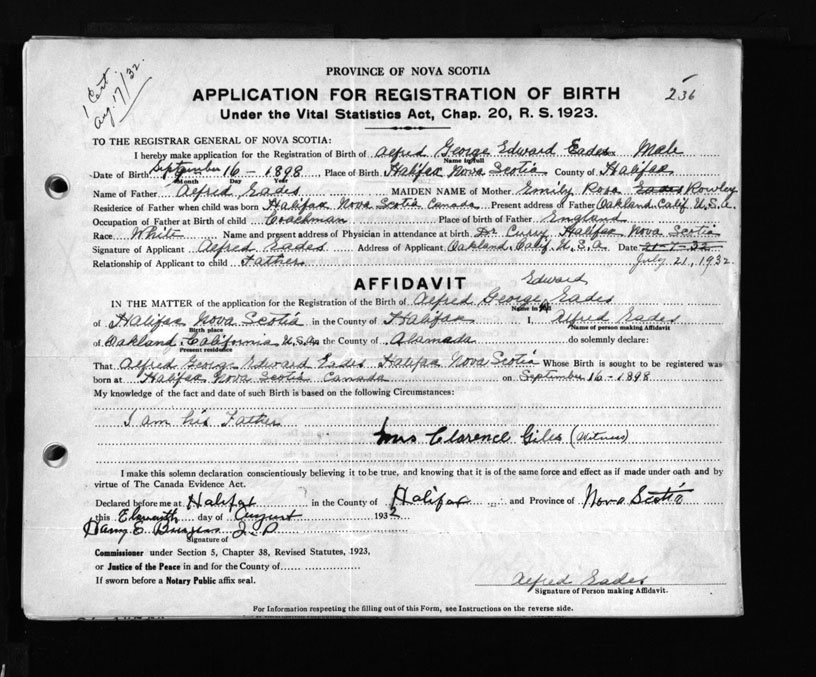 1 Cert.
Aug. 17/32.
236
PROVINCE OF NOVA SCOTIA
APPLICATION FOR REGISTRATION OF BIRTH
Under the Vital Statistics Act, Chap. 20, R. S. 1923.
TO THE REGISTRAR GENERAL OF NOVA SCOTIA:
I hereby make application for the Registration of Birth of Alfred George Edward Eades Male
Name in full
Date of Birth September 16 - 1898 Place of Birth Halifax Nova Scotia County of Halifax
Month Day Year
Name of Father Alfred Eades MAIDEN NAME of Mother Emily Rosa Eades Rowley
Residence of Father when child was born Halifax Nova Scotia Canada Present address of Father Oakland Calif U.S.A.
Occupation of Father at Birth of child Coachman Place of birth of Father England
Race White Name and present address of Physician in attendance at birth Dr Curry Halifax Nova Scotia
Signature of Applicant Alfred Eades Address of Applicant Oakland, Calif. U.S.A Date 21-7-32
Relationship of Applicant to child Father July 21, 1932.
AFFIDAVIT
Edward
IN THE MATTER of the application for the Registration of the Birth of Alfred George Eades
Name in full
of Halifax Nova Scotia in the County of Halifax I, Alfred Eades
Birth place Name of person making Affidavit
of Oakland, California U.S.A in the County of Alamada do solemnly declare:
Present residence
That Alfred George Edward Eades Halifax Nova Scotia Whose Birth is sought to be registered was
born at Halifax Nova Scotia Canada on September 16 - 1898
My knowledge of the fact and date of such Birth is based on the following Circumstances:
I am his Father
Mrs Clarence Giles (Witness)
I make this solemn declaration conscientiously believing it to be true, and knowing that it is of the same force and effect as if made under oath and by
virtue of The Canada Evidence Act.
Declared before me at Halifax in the County of Halifax and Province of Nova Scotia
this day of August 1932
Harry E Burgess J.P
Signature of
Commissioner under Section 5, Chapter 38, Revised Statutes, 1923,
or Justice of the Peace in and for the County of
If sworn before a Notary Public affix seal.
Alfred Eades
Signature of Person making Affidavit.
For Information respecting the filling out of this Form, see Instructions on the reverse side.